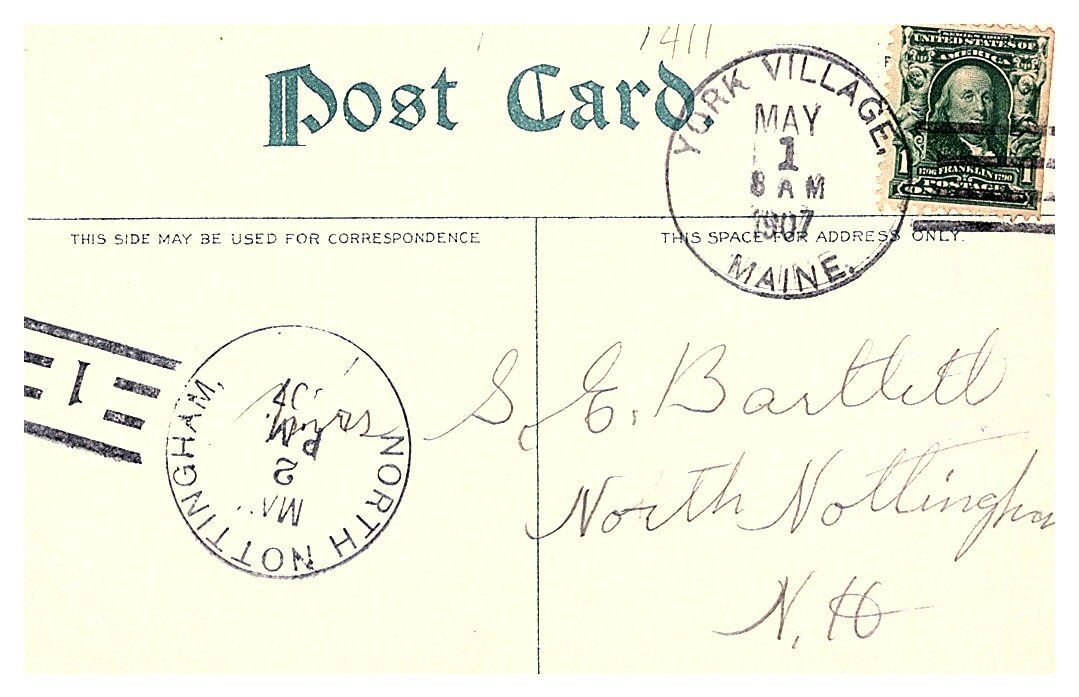 1411
Post Card.
YORK VILLAGE,
MAY
1
8 AM
1907
MAINE.
SERIES 1902
UNITED STATES OF
AMERICA
1 1706 FRANKLIN 1790 1
POSTAGE
THIS SIDE MAY BE USED FOR CORRESPONDENCE
THIS SPACE FOR ADDRESS ONLY.
Mrs S. E. Bartlett
North Nottingham
N. H
1
NORTH NOTTINGHAM,
2
PM